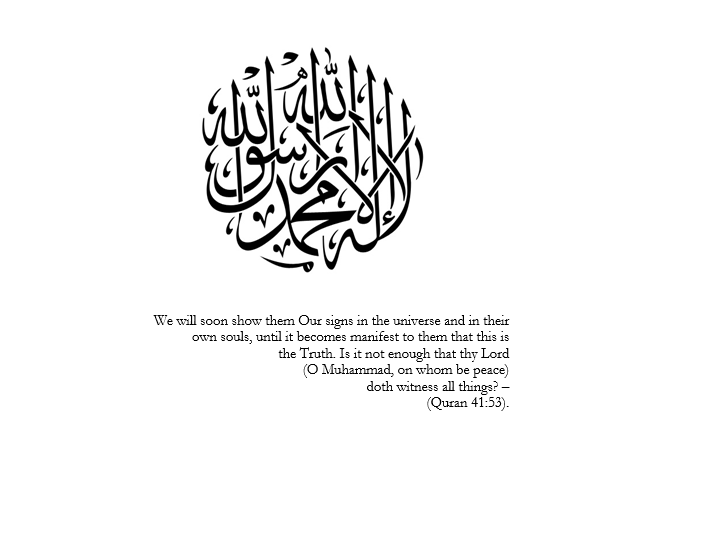 لا إله إلا الله محمد رسول الله
We will soon show them Our signs in the universe and in their
own souls, until it becomes manifest to them that this is
the Truth. Is it not enough that thy Lord
(O Muhammad, on whom be peace)
doth witness all things? –
(Quran 41:53).